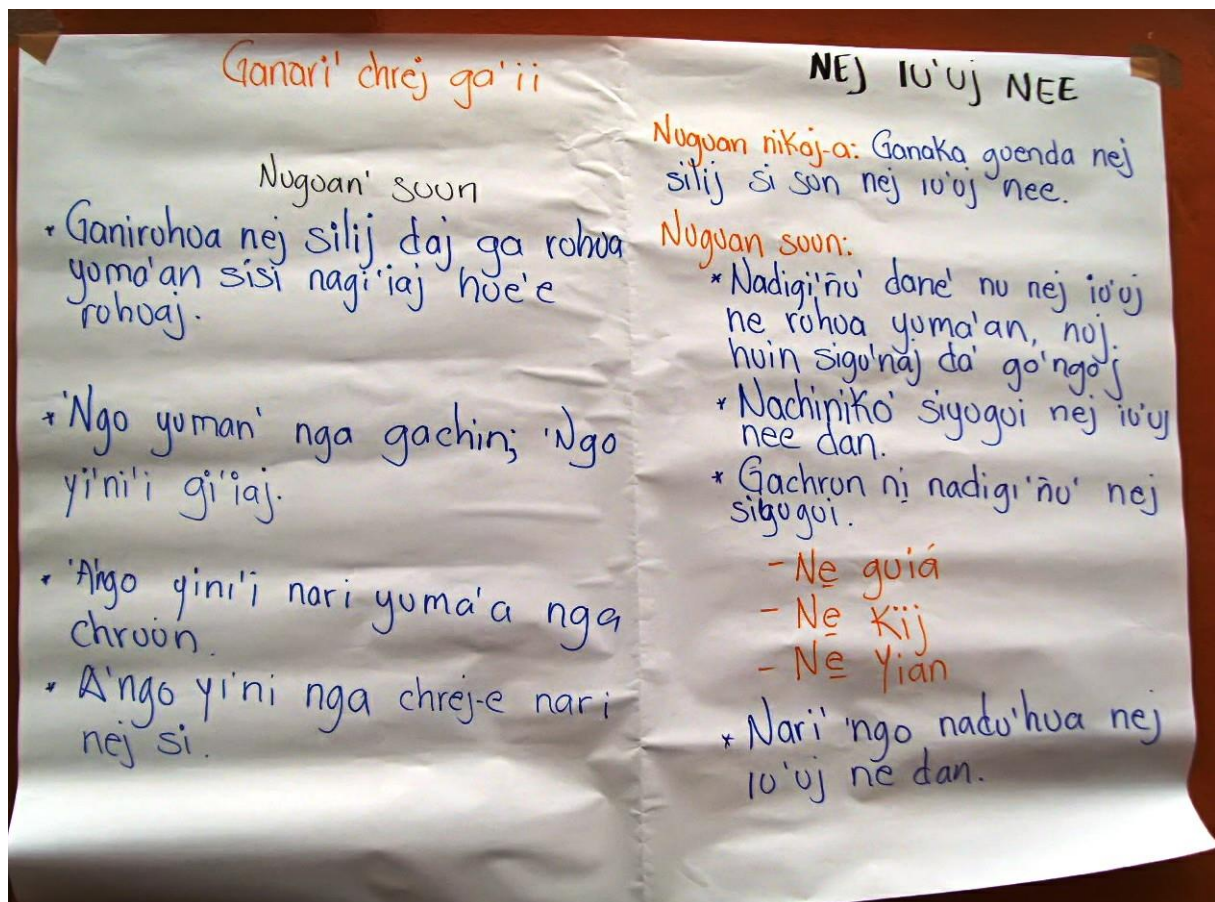 Ganari' chrej ga'ii
Nuguan' suun
* Ganirohua nej silij daj ga rohua
yuma'an sisi nagi'iaj hue'e
rohuaj.
* 'Ngo yuman' nga gachin; 'Ngo
yi'ni'i gi'iaj.
* 'A'ngo yini'i nari yuma'a nga
chruun.
* A'ngo yi'ni nga chrej-e nari
nej si.
NEJ IU'UJ NEE
Nuguan nikaj-a: Ganaka guenda nej
silij si sun nej iu'uj nee.
Nuguan suun:
* Nadigi'ñu' dane' nu nej iu'uj
ne rohua yuma'an, nuj
huin sigo'naj da' go'ngoj
* Nachiniko' siyugui nej iu'uj
nee dan.
* Gachrun ni nadigi'ñu' nej
siyugui.
- Ne guiá
- Ne Kïj
- Ne Yian
* Nari' 'ngo nadu'hua nej
iu'uj ne dan.